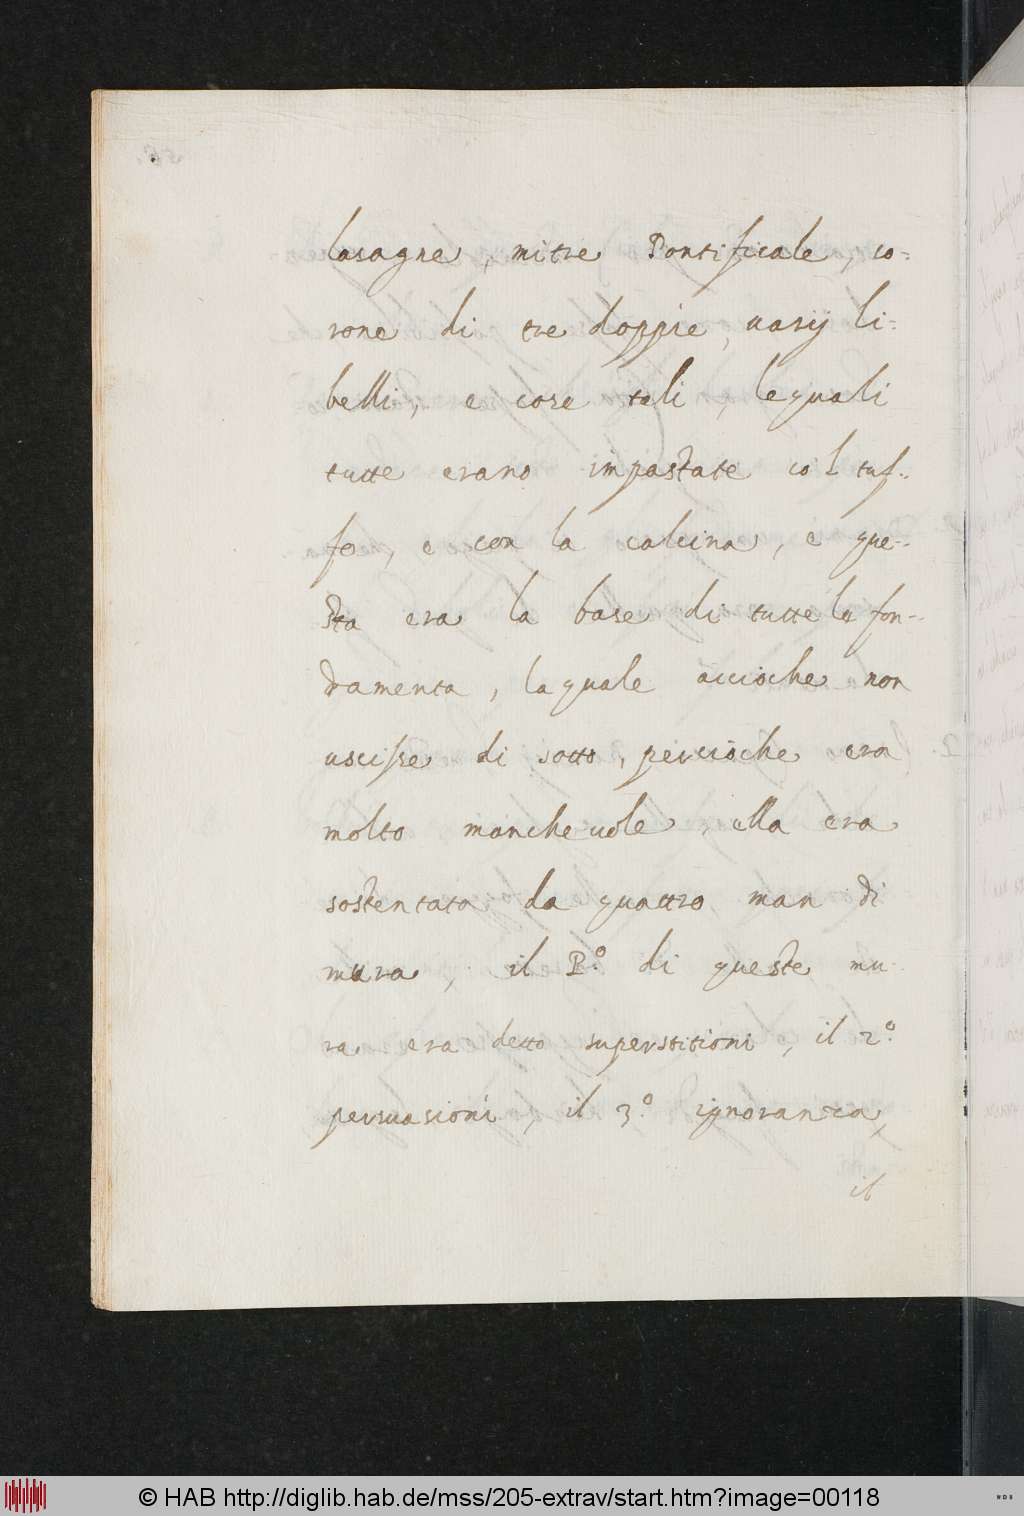 lasagne, mitre Pontificale, co-
rone di tre doppie, uarij li-
belli, e cose tali, lequali
tutte erano impastate col tuf-
fo, e con la calcina, e que-
sta era la base di tutte le fon-
damenta, laquale accioche non
uscisse di sotto, percioche era
molto mancheuole, ella era
sostentata da quattro man di
mura, il P.º di queste mu
ra era detto superstitioni, il 2.º
persuasioni, il 3.º ignoranza,
il
© HAB http://diglib.hab.de/mss/205-extrav/start.htm?image=00118